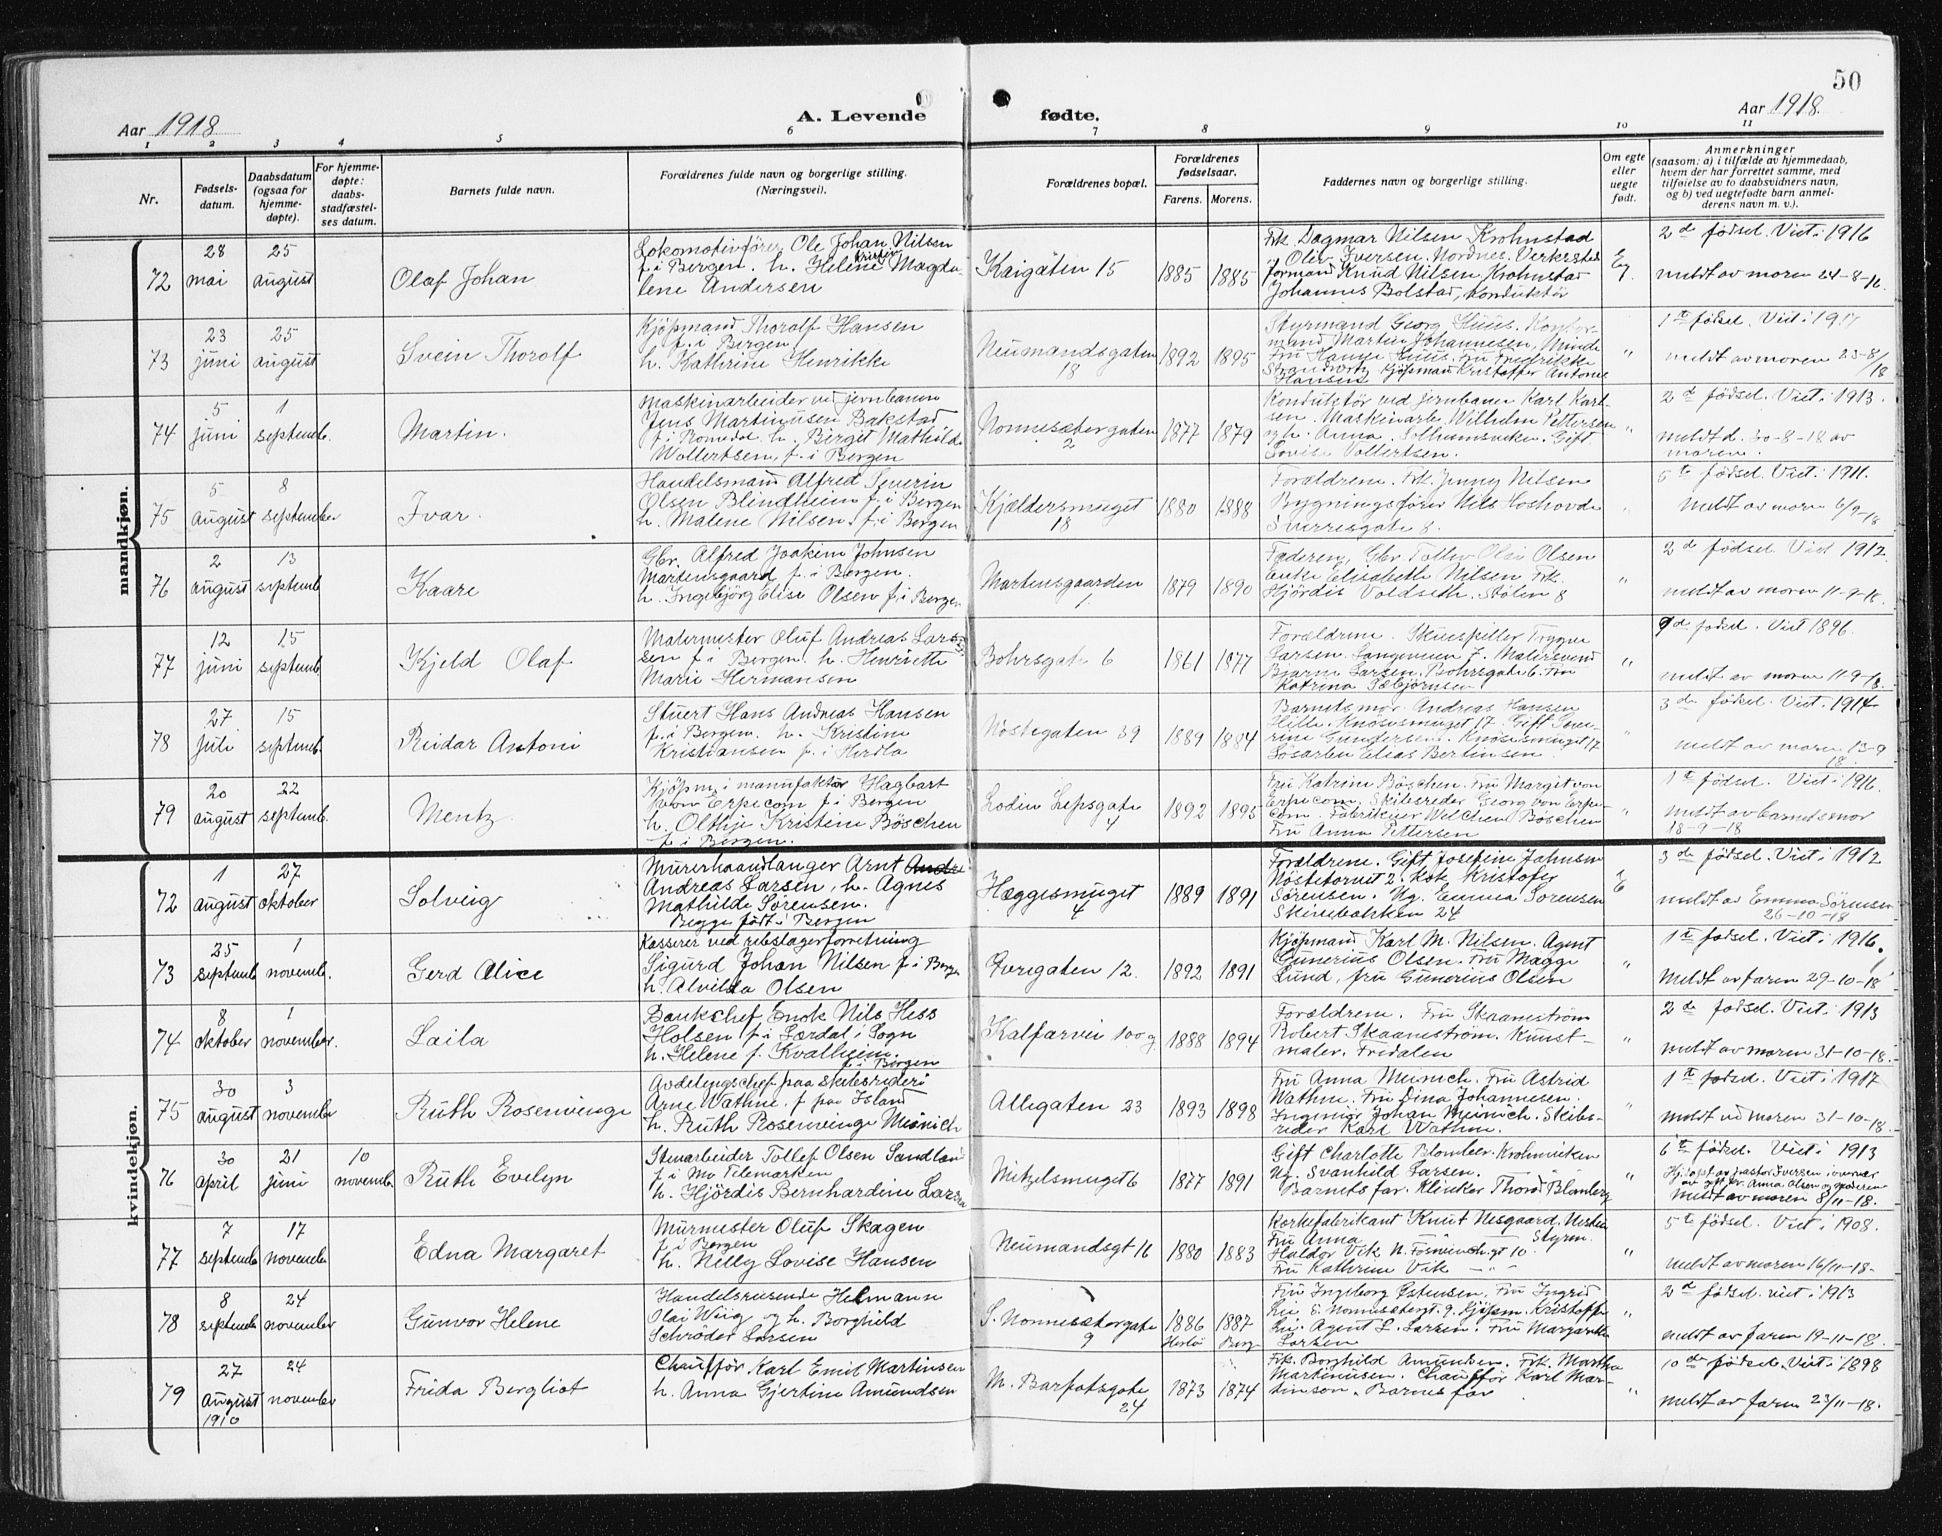 50
Aar 1918
A. Levende
fødte.
Aar 1918.
1 2 3 4 5 6 7 8 9 10 11
Nr.
Fødsels-
datum.
Daabsdatum
(ogsaa for
hjemme-
døpte).
For hjemme-
døpte:
daabs-
stadfæstel-
ses datum.
Barnets fulde navn.
Forældrenes fulde navn og borgerlige stilling.
(Næringsvei).
Forældrenes bopæl.
Forældrenes
fødselsaar.
Farens. Morens.
Faddernes navn og borgerlige stilling.
Om egte
eller
uegte
født.
Anmerkninger
(saasom: a) i tilfælde av hjemmedaab,
hvem der har forrettet samme, med
tilføielse av to daabsvidners navn,
og b) ved uegtefødte barn anmel-
derens navn m. v.).
mandkjøn.
72
28
mai
25
august
Olaf Johan
Lokomotivfører Ole Johan Nilsen
f. i Bergen. h. Helene Magda-
lene Andersen
Kaigaten 15
1885 1885
Frk. Dagmar Nilsen Kronstad
Olev Iversen, Nordnes. Verksted
formand Knud Nilsen, Krohnstad
Johannes Bolstad, Konduktør
2de fødsel. Viet i 1916
meldt av moren 24-8-18.
73
23
juni
25
august
Svein Thorolf
Kjøpmand Thorolf Hansen
f. i Bergen
h. Kathrine Henrikke
Neumandsgaten
18
1892 1895
Styrmand Georg Huus. Kontor-
mand Martin Johannesen, Minde
Fru Hanna Huus. Fru Fredrikke
Kjøpmand Kristoffer Antonie
Hansen
"
1te fødsel. Viet i
meldt av moren 23-8/18
74
5
juni
1
septemb.
Martin.
Maskinarbeider ved jernbanen
Jens Martinusen Bakstad
f. i Romedal h. Bergit Mathilde
Woltertsen, f. i Bergen
Nonnesætergaten
2
1877 1879
Konduktør ved jernbanen Karl Karl-
sen. Maskinarb. Wilhelm Pettersen
og h. Anna. Solheimsviken. Gift
Lovise Voltertsen.
"
2de fødsel. Viet i 1913.
meldt d. 30-8-18 av
moren.
75
5
august
8
september
Ivar.
Handelsmand Alfred Severin
Olsen Blindheim f. i Bergen
h. Malene Nilsen, f. i Bergen
Kjældersmuget
18
1880 1888
Forældrene. Frk. Jenny Nilsen
Bygningsfører Nils Hoshovde
Sverresgate 8.
"
5te fødsel. Viet i 1911.
Meldt av moren 6/9-18
76
2
august
13
septemb
Kaare
Gbr. Alfred Joakim Johnsen
Martensgaard f. i Bergen.
h. Ingebjørg Elise Olsen f. i Bergen
Martensgaarden
1.
1879 1890
Faderen, Gbr. Tollev Olai Olsen
Enke Elisabeth Nilsen. Frk.
Hjørdis Voldseth. Stølen 8
"
2de fødsel. Viet 1912.
meldt av moren 11-9-18.
77
12
juni
15
septemb.
Kjeld Olaf
Malermester Oluf Andreas Lars-
sen f. i Bergen. h. Henriette
Marie Hermansen
Bohrsgate 6
1861 1877
Forældrene. Skuespiller Trygve
Larsen. Langeveien 7. Malersvend
Bjarne Larsen, Bohrsgate 6. Fru
Katrina Sæbjørnsen
"
9de fødsel. Viet 1896.
meldt av moren 11-9-18.
78
27
juli
15
septemb.
Reidar Antoni
Stuert Hans Andreas Hansen
f. i Bergen. h. Kristine
Kristiansen f. i Herdla
Nøstegaten 39
1889 1884
Barnets mor. Andreas Hansen
Hille. Knøsesmuget 17. Gift Seve-
rine Gundersen. Knøsesmuget 17
Løsarb Elias Bertinsen.
"
3de fødsel. Viet i 1914
meldt av moren 13-9
18.
79
20
august
22
septemb.
Mentz.
Kjøpm. i manufaktør Hagbart
von Erpecom f. i Bergen
h. Olthje Kristine Bøschen
f. i Bergen.
Lodin Lepsgate
4
1892 1895
Fru Katrine Bøschen. Fru Margit von
Erpecom, Skibsreder Georg von Erpe-
com. Fabrikeier Wilchen Bøschen
Fru Anna Pettersen
"
1te fødsel. Viet i 1916.
meldt av barnets mor
18-9-18
kvindekjøn.
72
1
august
27
oktober
Solveig
Murerhaandlanger Arnt
Andreas Larsen, h. Agnes
Mathilde Sørensen.
Begge født i Bergen
Hæggesmuget
4
1889 1891
Forældrene. Gift Josefine Johnsen
Nøstetorvet 2. Kok Kristofer
Sørensen. Ug. Emma Sørensen
Skivebakken 24
E
3de fødsel. Viet i 1912
meldt av Emma Sørensen
26-10-18
73
25
septemb
1
novemb.
Gerd Alice
Kasserer ved rebslagerforretning
Sigurd Johan Nilsen f. i Bergen
h. Alvilda Olsen
Øvregaten 12.
1892 1891
Kjøpmand Karl M. Nilsen. Agent
Gunerius Olsen. Fru Magge
Lund, fru Gunerius Olsen
"
1te fødsel. Viet i 1916.
Meldt av faren 29-10-18
74
8
oktober
1
november.
Laila
Bankchef Enok Nils Hess
Holsen f. i Lærdal i Sogn
h. Helene f. Kvalheim.
f. i Bergen
Kalfarvei 100 g
1888 1894
Forældrene. Fru Skramstrøm
Robert Skaamstrøm. Kunst-
maler. Fridalen
"
2de fødsel. Viet i 1913
meldt av moren 31-10-18.
75
30
august
3
november
Ruth Rosenvinge
Avdelingschef paa skibsrederi
Arne Wathne. f. paa Island
h. Ruth Rosenvinge Meinich
Allégaten 23
1893 1898
Fru Anna Meinich. Fru Astrid
Wathne. Fru Dina Johannesen.
Ingeniør Johan Meinich. Skibs-
reder Karl Wathne.
"
1te fødsel. Viet i 1917
meldt ved moren 31-10-18.
76
30
april
21
juni
10
novemb.
Ruth Evelyn
Stenarbeider Tollef Olsen Sandland
f. i Mo Telemarken
h. Hjørdis Bernhardine Larsen
Mitzelsmuget 6
1877 1891
Gift Charlotte Blomberg. Krohnviken
Ug. Svanhild Larsen. " "
Barnets far. Klinker Thorvd Blomberg
"
6te fødsel. Viet i 1913
Hj.døpt av pastor Iversen i overvær
av gift fr. Anna Olsen og moderen
meldt av moren 8/11-18.
77
7
septemb
17
novemb
Edna Margaret
Murmester Oluf Skagen
f. i Bergen
h. Nelly Lovise Hansen
Neumandsgt 16
1880 1883
Korkefabrikant Knut Nesgaard, Nesttun
Fru Anna Styrm.
Haldor Vik N. Fosvinck.gt 10.
Fru Kathrine Vik — " —
"
5te fødsel. Viet i 1908.
meldt av moren 16/11-18.
78
8
septemb
24
november
Gunvor Helene
Handelsreisende Helmann
Olai Wiig og h. Borghild
Schrøder Larsen
S. Nonnesætergate
9
1886 1887
Herlø Berg
Fru Ingeborg Østensen. Fru Ingrid
Lie S. Nonnesætergt. 9. Kjøpm. Kristoffer
Lie. Agent L. Larsen. Fru Margarethe
Larsen
"
2de fødsel. viet i 1913
meldt av faren 19-11-18.
79
27
august
1910
24
november
Frida Bergliot
Chauffør Karl Emil Martinsen
h. Anna Gjertine Amundsen
M. Barfotsgate
24
1873 1874
Frk. Borghild Amundsen. Frk. Martha
Martinusen. Chauffør Karl Mar-
tinson. Barnets far
"
10de fødsel. Viet i 1898
meldt av faren 23/11-18.